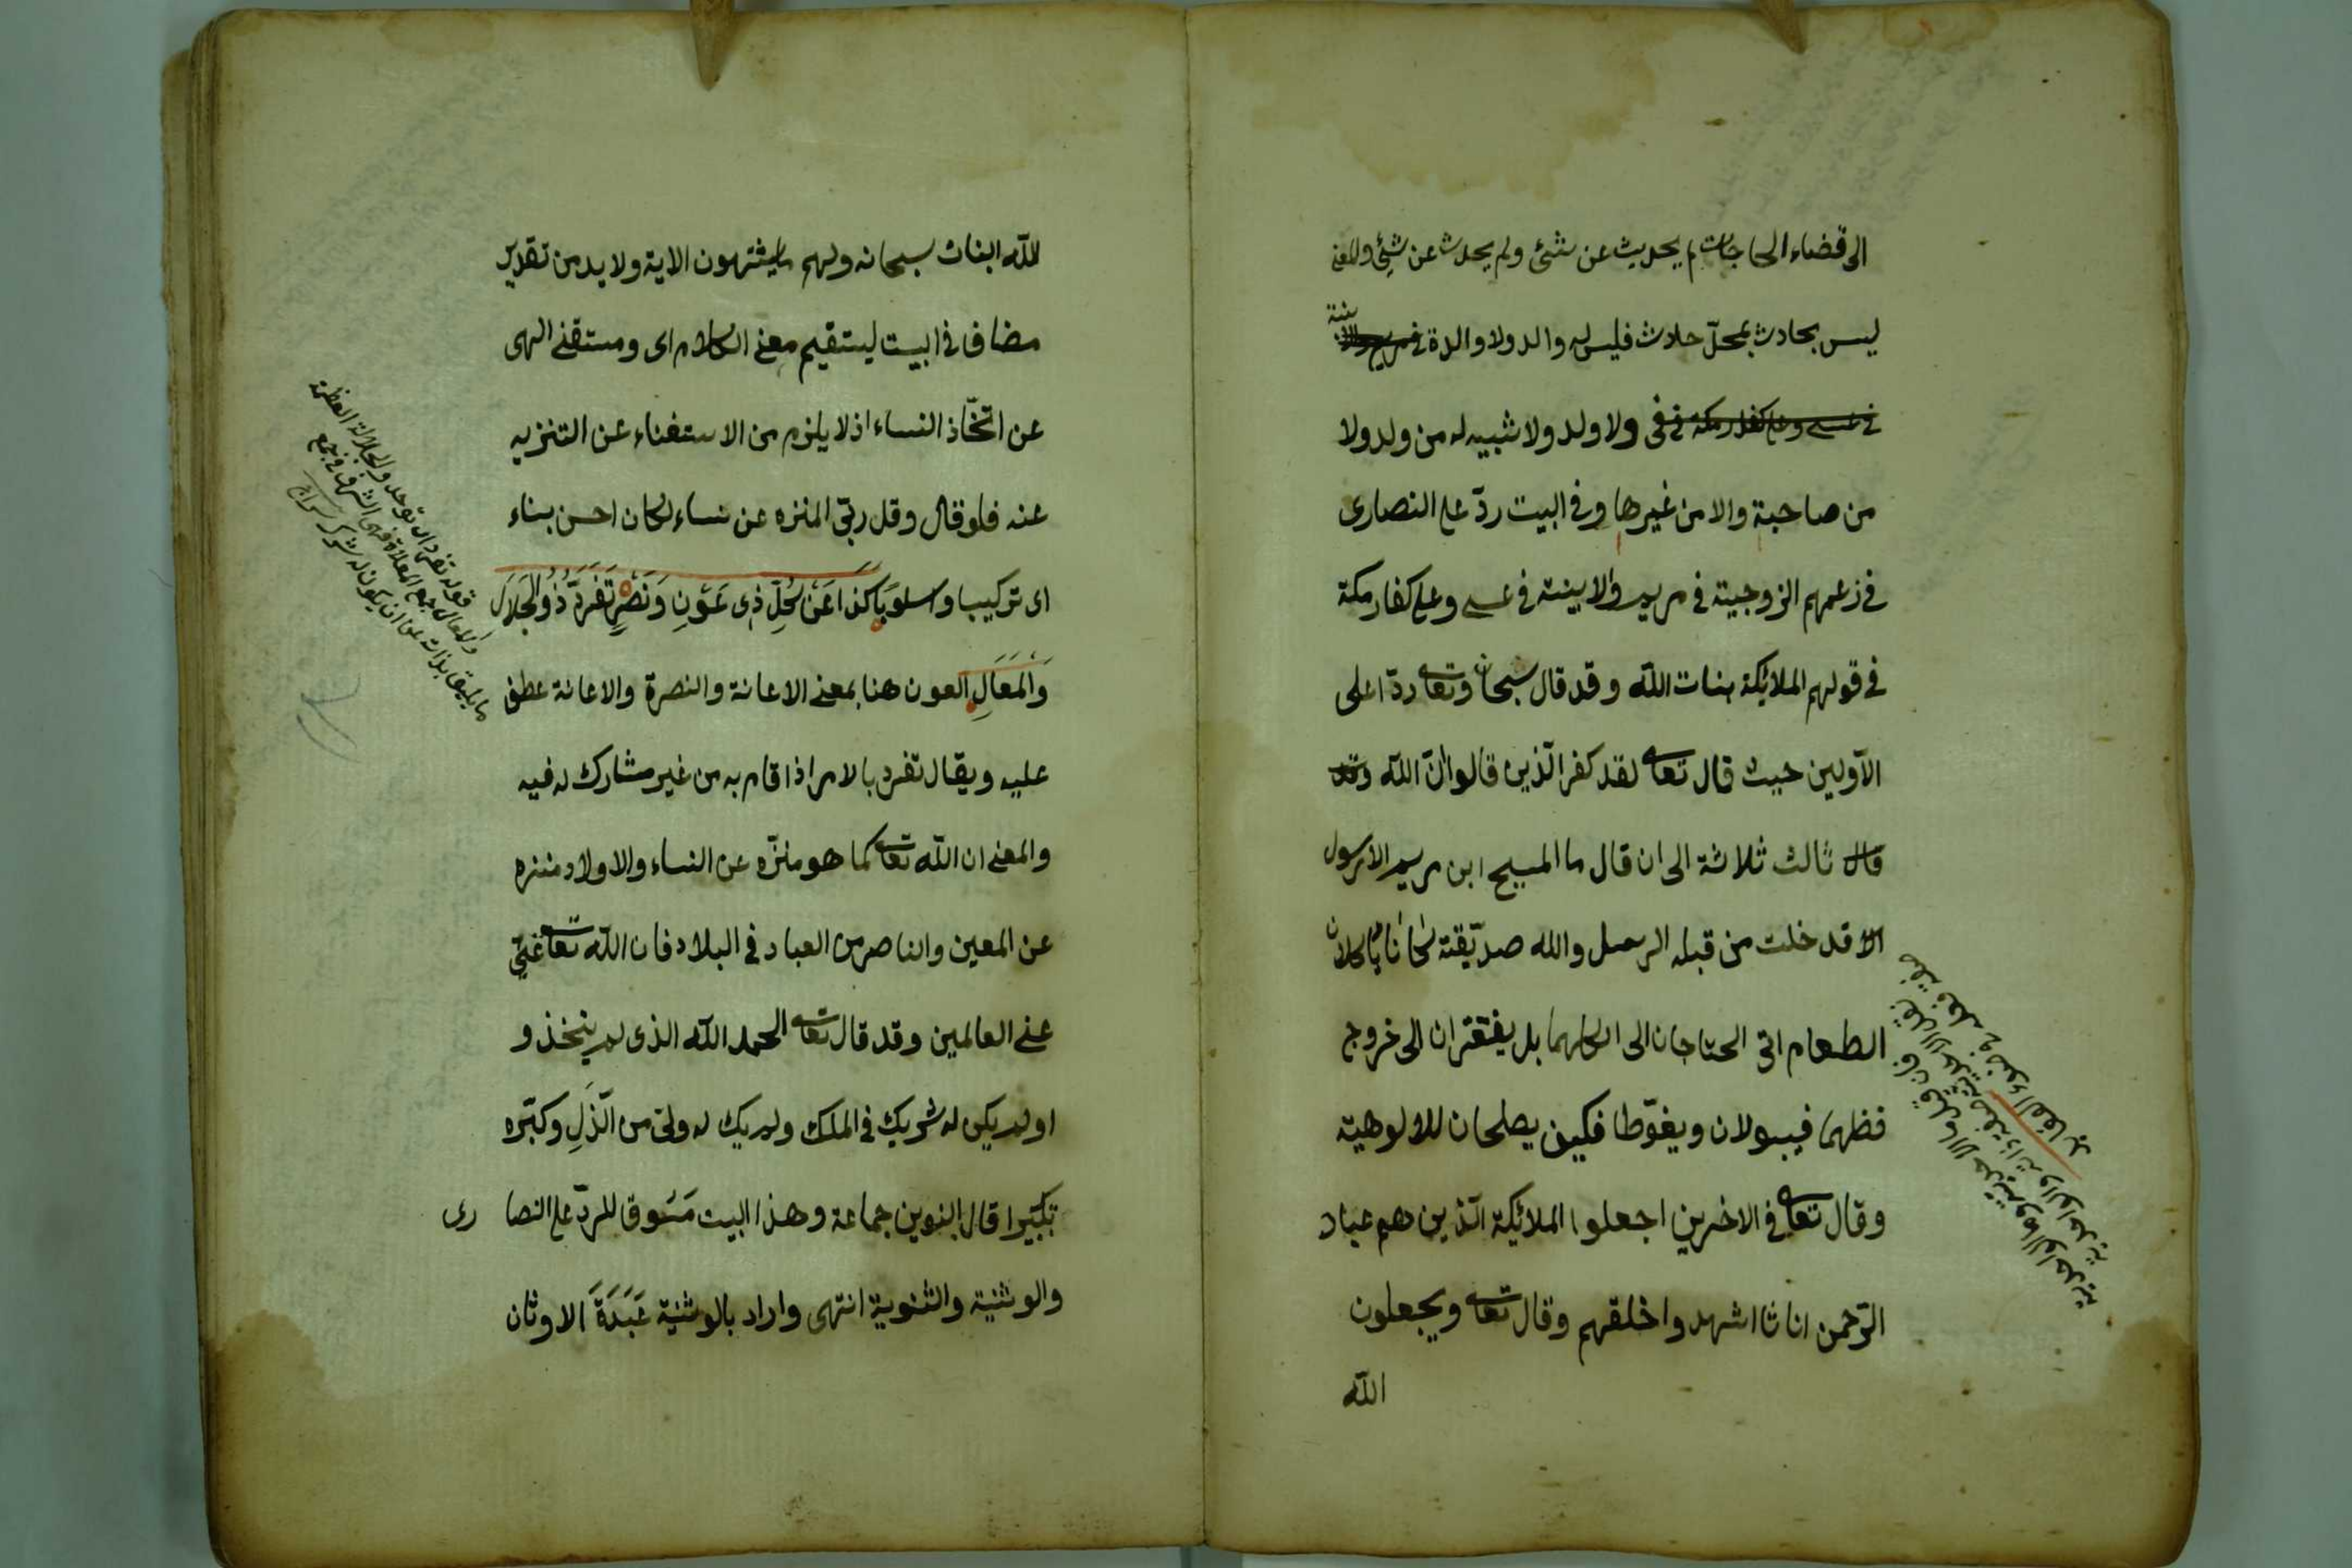 الى قضاء الحاجات لم يحدث عن شئ ولم يحدث عن شئ والمعنى
ليس بحادث بمحلّ حلادث فليس له والد ولا والدة
ولا ولد ولا شبيه له من ولد ولا
من صاحبة والا من غيرها وفي البيت ردّ على النصارى
في زعمهم الزوجية في مريم والابنية في عيسى وعلى كفار مكة
في قولهم الملائكة بنات اللّه وقد قال سبحانه وتعالى ردّا على
الاولين حيث قال تعالى لقد كفر الّذين قالوا انّ اللّه وقد
قال ثالث ثلاثة الى ان قال ما المسيح ابن مريم الا رسول
الا قد خلت من قبله الرسل وامه صدّيقة كانا ياكلان
الطعام اى الحتاجان الى اكلهما بل يفتقران الى خروج
فضلهما فيبولان ويغوّطا فكيف يصلحان للالوهية
وقال تعالى في الاخرين اجعلوا الملائكة الّذين هم عباد
الرّحمن اناثا اشهدوا خلقهم وقال تعالى ويجعلون
اللّه
للّه البنات سبحانه ولهم ما يشتهون الاية ولا بد من تقدير
مضاف في البيت ليستقيم معنى الكلام اى ومستغنى الهى
عن اتّخاذ النساء اذ لا يلزم من الاستغناء عن التنزيه
عنه فلو قال وقل ربّى المنزه عن نساء لكان احسن بناء
اى تركيبا واسلوبا كذا عَنْ كُلِّ ذِى عَوْنِ وَنَصْرٍ تَفَرَّدَ ذُو الْجَلَالِ
وَالْمَعَالِ العون هنا بمعنى الاعانة والنصرة والاعانة عطف
عليه ويقال تفرد بالامر اذا قام به من غير مشارك له فيه
والمعنى ان اللّه تعالى كما هو منزّه عن النساء والاولاد منزه
عن المعين والناصر من العباد في البلاد فان اللّه تعالى غنيّ
عن العالمين وقد قال تعالى الحمد اللّه الذى لم يتخذ و
اولم يكن له شريك في الملك ولم يك له ولى من الّذلِ وكبّره
تكبيرا قال البنوين جماعة وهذا البيت مَسُوق للردّ على النصا رى
والوثنية والثنوية انتهى واراد بالوثنية عَبَدَةَ الاوثان
قوله تفرد اى توحد والجلالة العظمة
والمعال جمع المعلاة فهى الشرف في جمع
ما يليق بذاته عن ان يكون له شريك